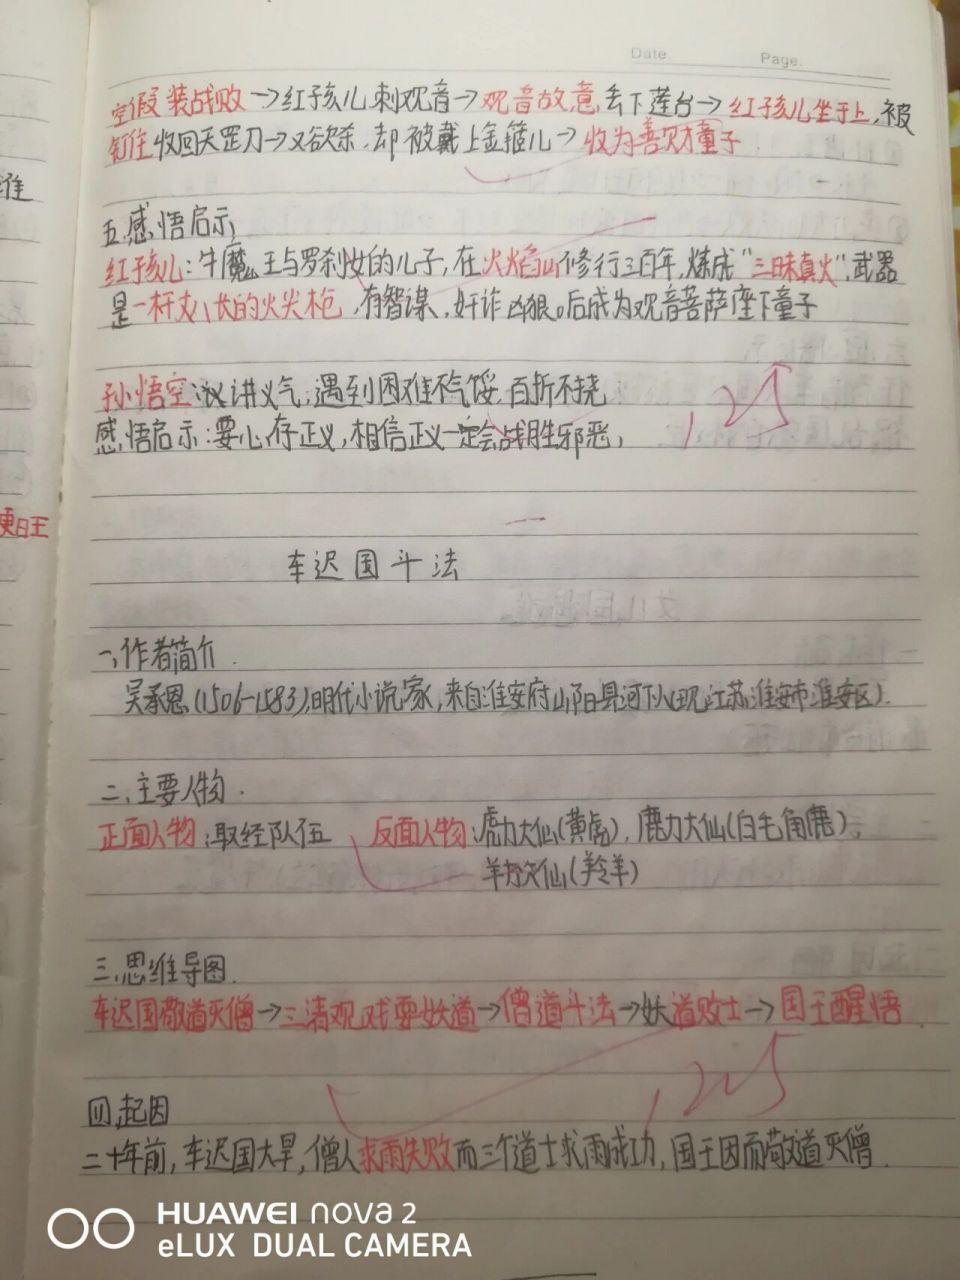 Date.    Page.
空假装战败→红孩儿刺观音→观音故意丢下莲台→红孩儿坐于上,被
钉住收回天罡刀→又欲杀,却被戴上金箍儿→收为善财童子
五.感悟启示
红孩儿:牛魔王与罗刹女的儿子,在火焰山修行三百年,炼成"三昧真火",武器
是一杆丈八长的火尖枪,有智谋,奸诈凶狠。后成为观音菩萨座下童子
孙悟空:讲义气;遇到困难不气馁,百折不挠
感悟启示:要心存正义,相信正义一定会战胜邪恶,
车迟国斗法
一、作者简介.
吴承恩(1506-1583),明代小说家,来自淮安府山阳县河下人(现江苏淮安市淮安区).
二、主要人物.
正面人物:取经队伍 反面人物:虎力大仙(黄虎),鹿力大仙(白毛角鹿),
羊力大仙(羚羊)
三.思维导图.
车迟国敬道灭僧→三清观戏耍妖道→僧道斗法→妖道败亡→国王醒悟
四.起因
二十年前,车迟国大旱,僧人求雨失败而三个道士求雨成功,国王因而敬道灭僧.
1.25
1.25
HUAWEI nova 2
eLUX DUAL CAMERA